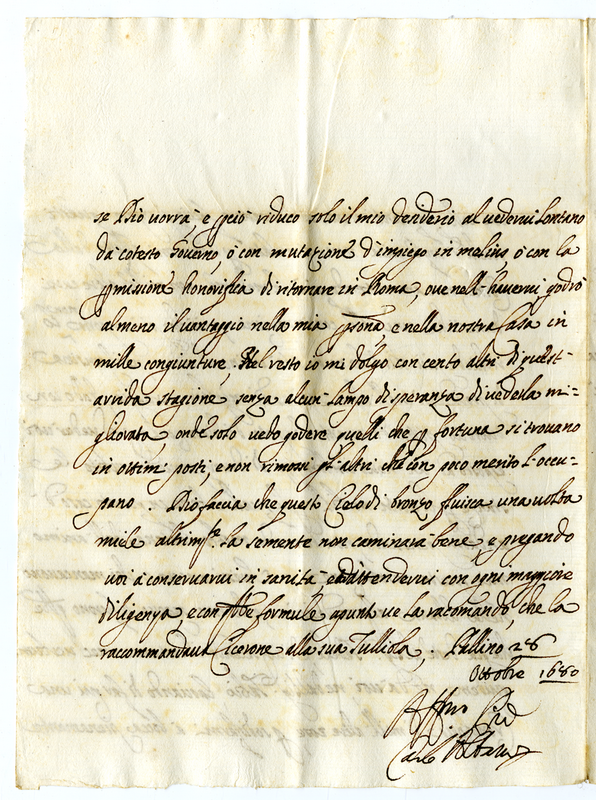 se Dio vorrà, e p ciò riduco solo il mio desiderio al vedervi lontano
da cotesto Governo, ò con mutazione d'impiego in melius, ò con la
pmissione honorifica di ritornare in Roma, ove nell'havervi godrò
almeno il vantaggio nella mia psona, e nella nostra Casa in
mille congiunture. Nel resto io mi dolgo con cento altri di quest'
arrida stagione, senza alcun lampo di speranza di vederla mi-
gliorata, onde solo vedo godere quelli che p fortuna si trovano
in ottimi posti, e non rimossi gl'altri che con poco merito l'occu-
pano. Dio faccia che questo Cielo di bronzo fluisca una volta
miele altrimte. la semente non caminarà bene, e pregando
voi à conservarvi in sanità ed attendervi con ogni maggiore
diligenza, e con formule apunto ve la racomando, che la
raccommandava Cicerone alla sua Tulliola. 28
Ottobre 1680
Affmo
Carlo